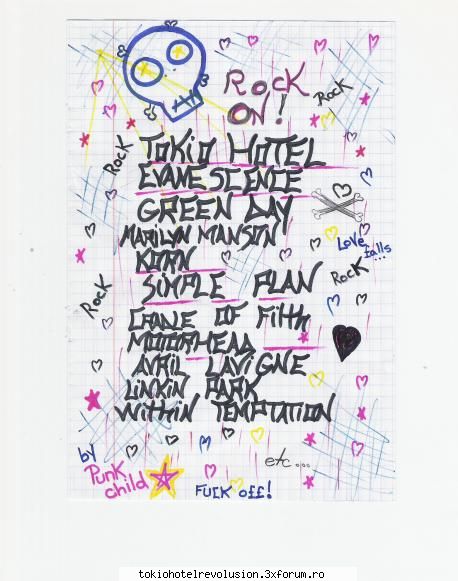 Rock
ON!
Rock
Rock
TOKIO HOTEL
EVANESCENCE
GREEN DAY
MARILYN MANSON
Love
falls
...
KORN
Rock
SIMPLE PLAN
Rock
CRADLE OF FilTH
MOTORHEAD
AVRIL LAVIGNE
LINKIN PARK
WITHIN TEMPTATION
by
Punk
child
etc...
FUCK OFF!
tokiohotelrevolusion.3xforum.ro